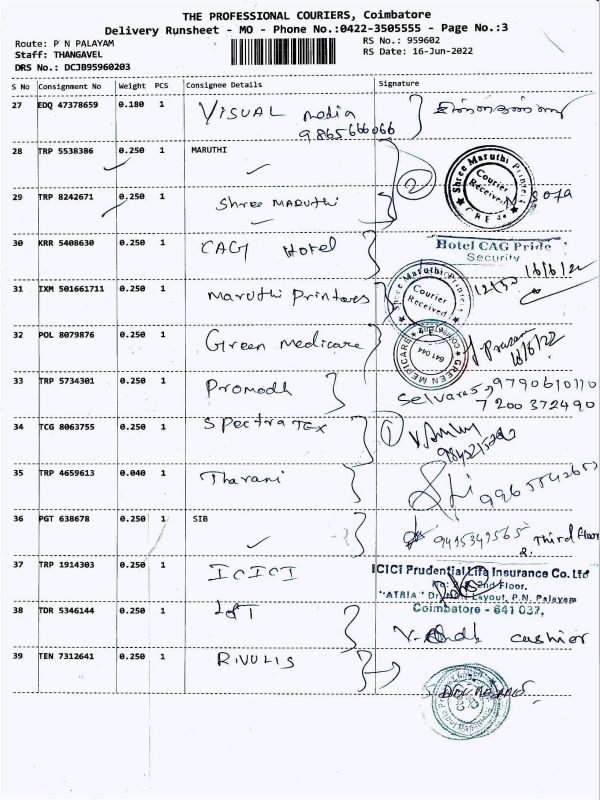 THE PROFESSIONAL COURIERS, Coimbatore
Delivery Runsheet - MO - Phone No.:0422-3505555 - Page No.:3
Route: P N PALAYAM
RS No.: 959602
Staff: THANGAVEL
RS Date: 16-Jun-2022
DRS No.: DCJB95960203
S No Consignment No Weight PCS Consignee Details Signature
27 EDQ 47378659 0.180 1 VISUAL media
9865666066
28 TRP 5538386 0.250 1 MARUTHI
29 TRP 8242671 0.250 1 Shree MARUTHI
2
Shree Maruthi Printers
Courier Received
30 KRR 5408630 0.250 1 CAG Hotel
Hotel CAG Pride
Security
16/6/22
31 IXM 501661711 0.250 1 Maruthi Printares
Shree Maruthi Printers
Courier Received
12:50
32 POL 8079876 0.250 1 Green medicare
GREEN MEDICARE
641 044
16/6/22
33 TRP 5734301 0.250 1 Promodh
Selvaras 9790610110
7200372490
34 TCG 8063755 0.250 1 Spectra TEX
1
35 TRP 4659613 0.040 1 Tharani
36 PGT 638678 0.250 1 SIB
9415349565 Third floor
37 TRP 1914303 0.250 1 ICICI
ICICI Prudential Life Insurance Co. Ltd
2nd Floor,
"ATRIA" Layout, P.N. Palayam
Coimbatore - 641 037,
38 TDR 5346144 0.250 1
cashier
39 TEN 7312641 0.250 1 RIVULIS